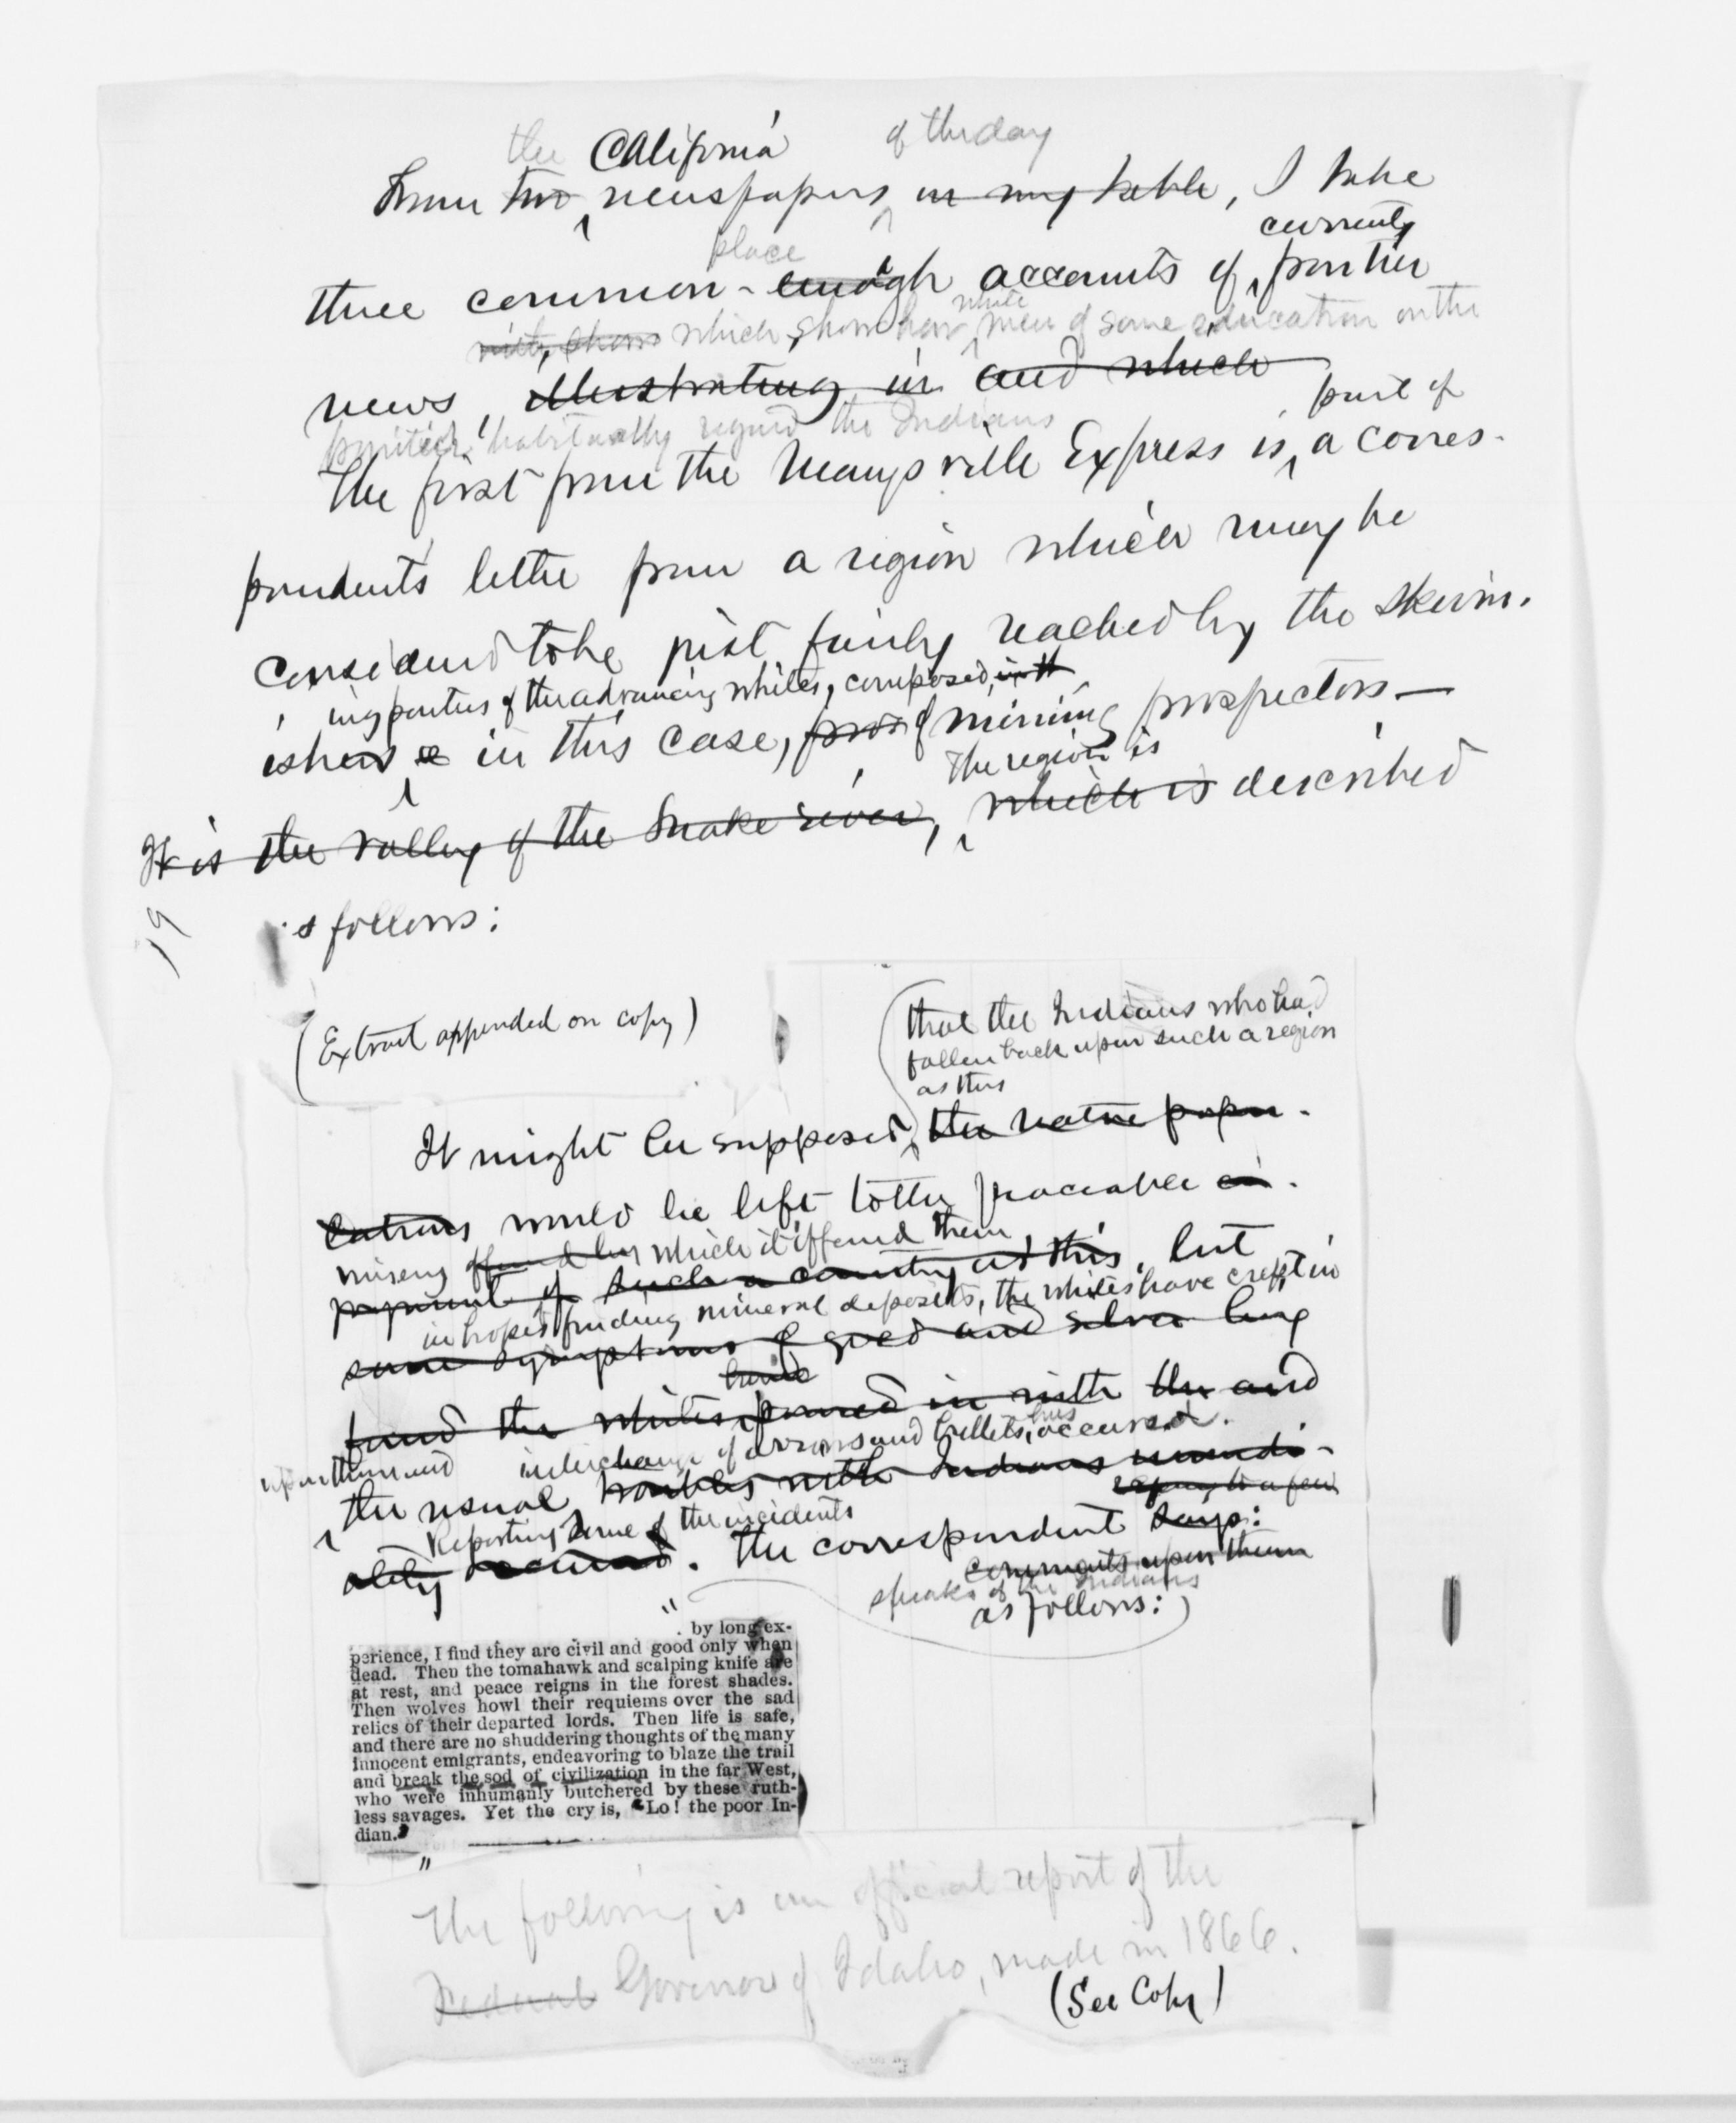 the California of the day
From two newspapers on my table, I take
place currently
three common-enough accounts of frontier
which show how white men of some education on the
news, illustrating in and which
frontier habitually regard the Indians part of
The first from the Marysville Express is a corres-
pondent's letter from a region which may be
considered to be just fairly reached by the skirm-
ing parties of the advancing whites, composed, in th
ishers in this case, of mining prospectors—
The region is
It is the valley of the Snake river, which is described
19
as follows:
(Extract appended on copy)
that the Indians who had
fallen back upon such a region
as this
It might be supposed, the native popu-
lations would be left to the peaceable en-
misery offered by which it offered them,
joyment of such a country as this, but
in hopes of finding mineral deposits, the whites have crept in
some symptoms of gold and silver being
found the whites poured in with the and
upon them and interchange of arrows and bullets has occurred.
the usual troubles with Indians immedi-
Reporting some of the incidents
ately occurred. The correspondent says:
comments upon them
speaks of the Indians
as follows:
" by long ex-
perience, I find they are civil and good only when
dead. Then the tomahawk and scalping knife are
at rest, and peace reigns in the forest shades.
Then wolves howl their requiems over the sad
relics of their departed lords. Then life is safe,
and there are no shuddering thoughts of the many
innocent emigrants, endeavoring to blaze the trail
and break the sod of civilization in the far West,
who were inhumanly butchered by these ruth-
less savages. Yet the cry is, "Lo! the poor In-
dian."
"
The following is an official report of the
Federal Governor of Idaho, made in 1866.
(See Copy)